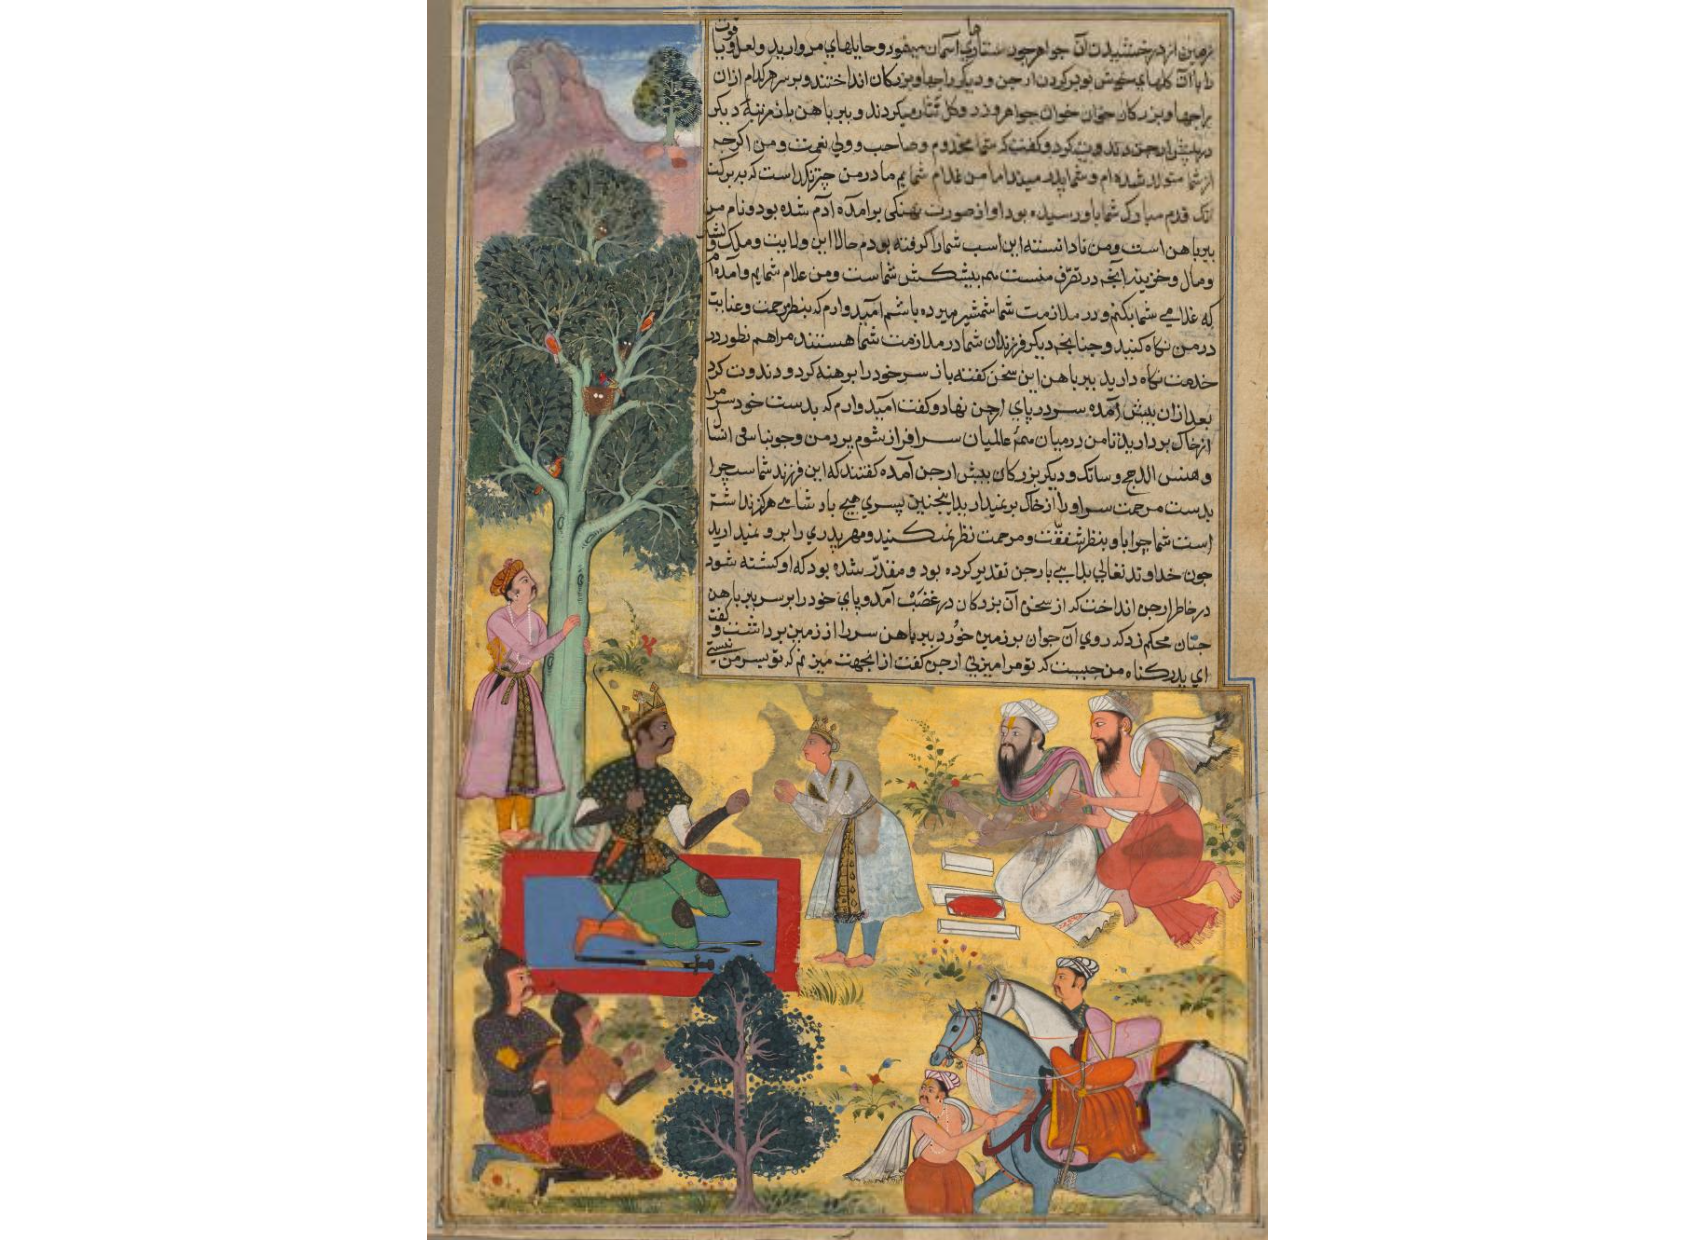 زمین از درخشیدن آن جواهر جون ستارهای آسمان مینمود و حایلهای مروارید و لعل و یاقوت
را با آن کلهای خوش بوی در کردن ارجن و دیکر راجها و بزرکان انداختند و بر سر هر کدام از ان
راجها و بزرکان خوان خوان جواهر و زر و کل نثار میکردند و ببرباهن بار مرتبه دیکر
در پیش ارجن دندوت کرد و کفت که شما مخدوم و صاحب و ولی نعمت و من اکرچه
از شما متولد شده ام و شما پدر میند اما من غلام شمایم مادر من چترنکدا است که ببرکت
قدم مبارک شما باو رسیده بود او از صورت نهنکی برامده آدم شده بود و نام من
ببرباهن است و من نادانسته این اسب شما را کرفته بودم حالا این ولایت و ملک و لشکر
و مال و خزینه آنچه در تصرف منست همه پیشکش شماست و من غلام شمایم و آمده ام
که غلامی شما بکنم و در ملازمت شما شمشیر میزده باشم امیدوارم که بنظر مرحمت و عنایت
در من نکاه کنید و چنانچه دیکر فرزندان شما در ملازمت شما هستند مرا هم بطور در
خدمت نکاه دارید ببرباهن این سخن کفته باز سر خود را برهنه کرد و دندوت کرد
بعد ازان پیش آمده سر در پای ارجن نهاد و کفت امیدوارم که بدست خود سر مرا
از خاک بردارید تا من در میان همه عالمیان سرافراز شوم پردمن و جوبناسو
و هنس الدجی و ساتک و دیکر بزرکان پیش ارجن آمده کفتند که این فرزند شماست چرا
بدست مرحمت سر او را از خاک بر نمیدارید اینچنین پسری هیچ بادشاهی هرکز نداشته
است شما چرا باو بنظر شفقت و مرحمت نظر نمیکنید و مهر پدری را برو نمیدارید
جون خداوند تعالی بلایی بارجن تقدیر کرده بود و مقدر شده بود که او کشته شود
در خاطر ارجن انداخت که از سخن آن بزرکان در غضب آمد و پای خود را بر سر ببرباهن
چنان محکم زد که روی آن جوان بر زمین خورد ببرباهن سر را از زمین برداشت و کفت
ای پدر کناه من چیست که تو مرا میزنی ارجن کفت از انجهت میزنم که تو پسر من نیستی